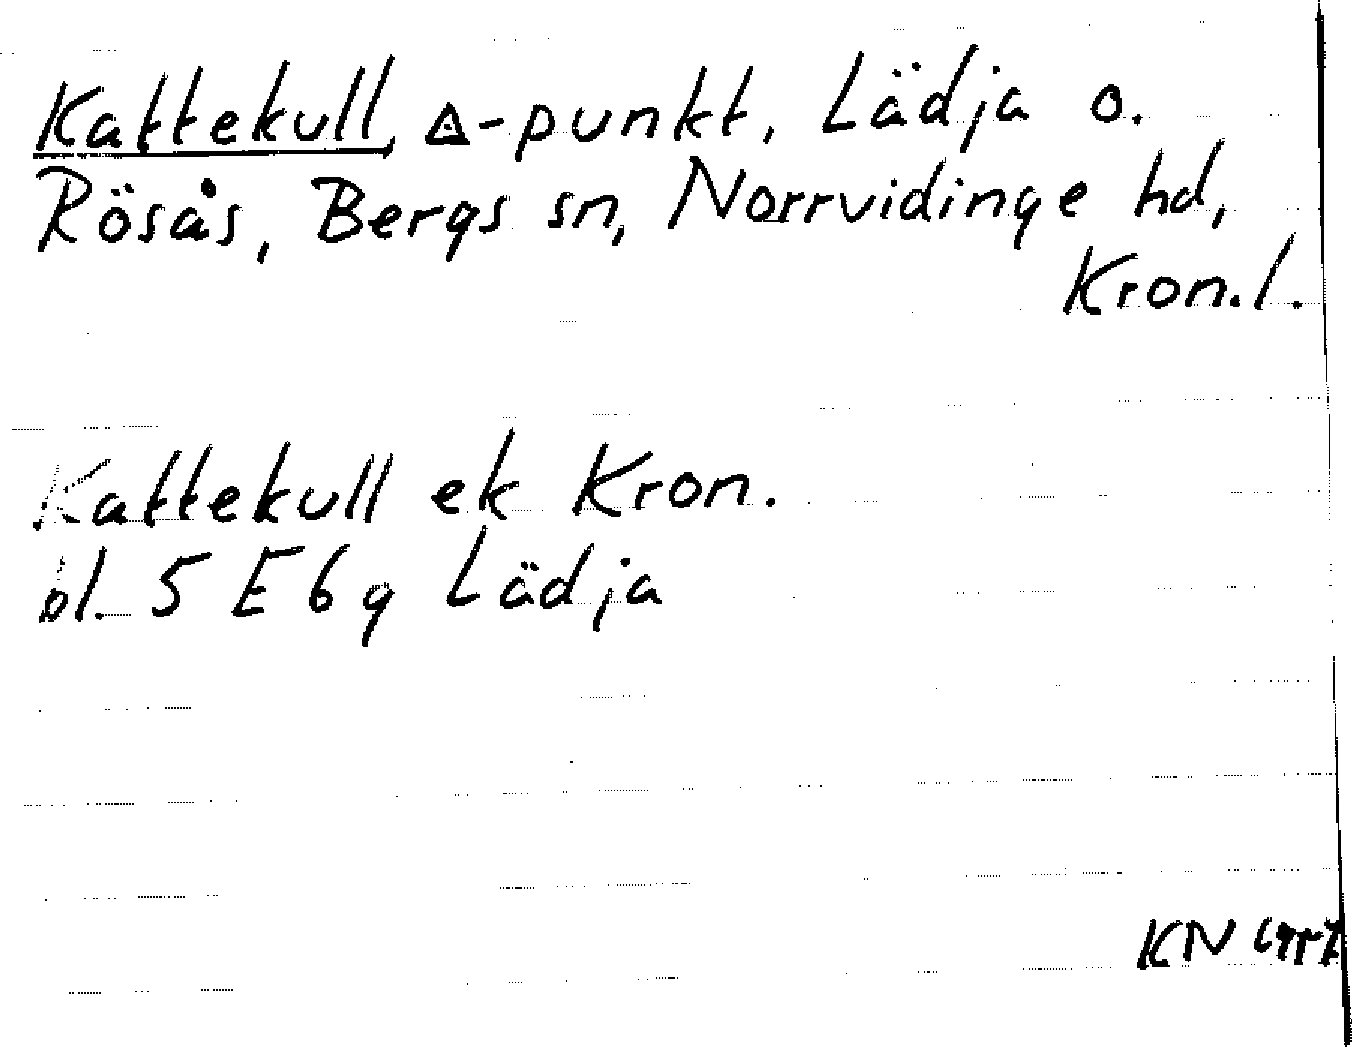 Kattekull, △-punkt, Lädja o.
Rösås, Bergs sn, Norrvidinge hd,
Kron. l.
Kattekull ek Kron.
bl. 5 E 6 g Lädja
KN